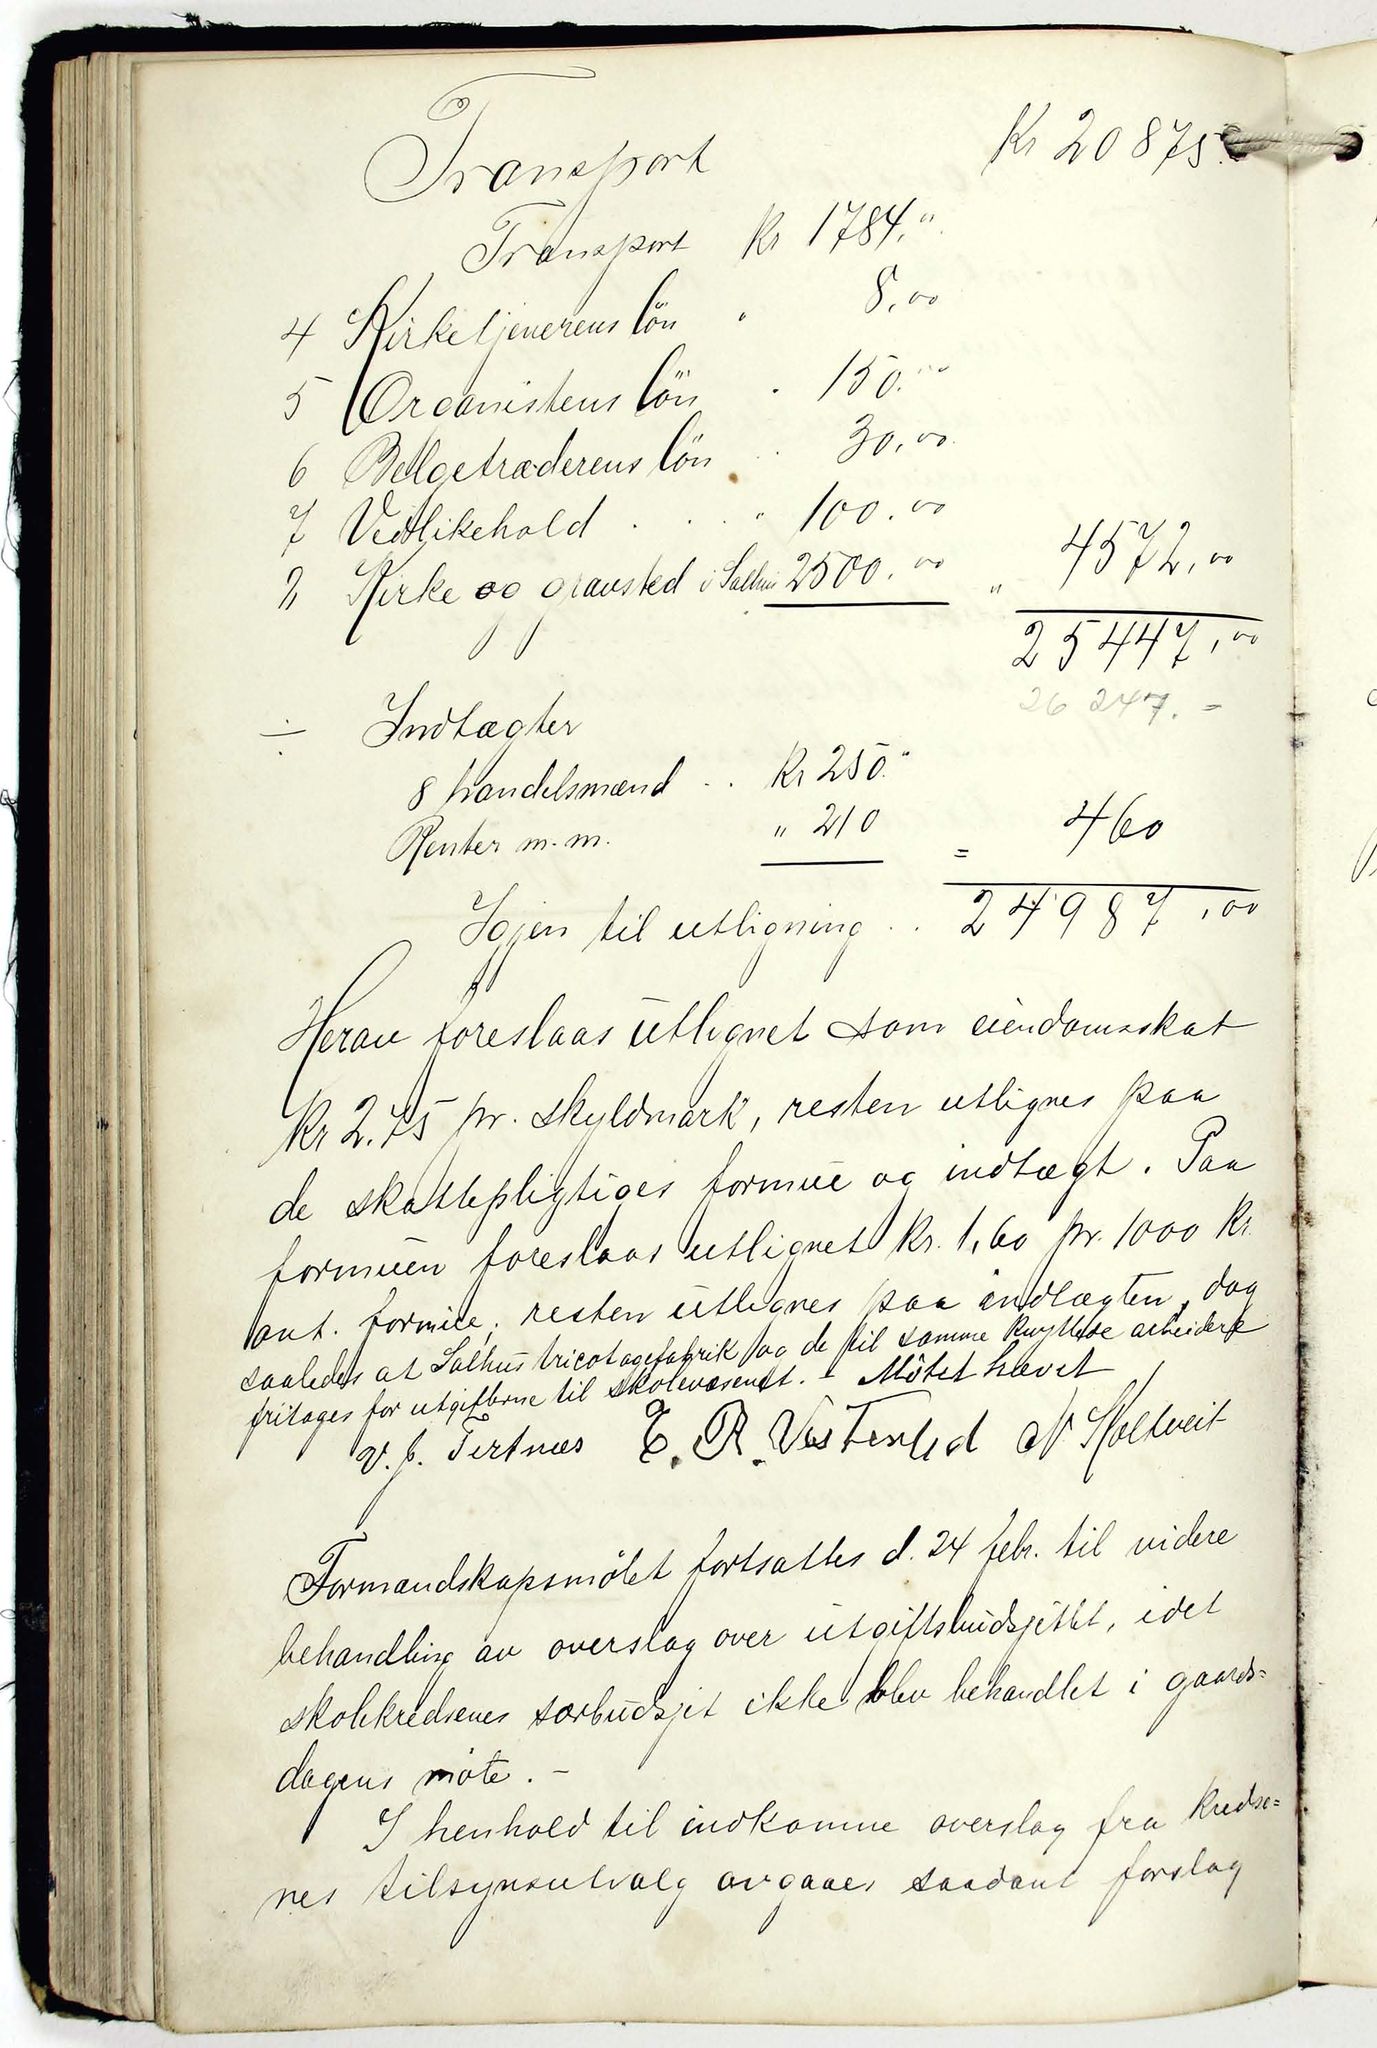 Transport Kr 20875.
Transport Kr 1784."
4 Kirketjenerens løn " 8,00
5 Organistens løn " 150.00
6 Belgetræderens løn " 30,00
7 Vedlikehold . . . " 100.00
" Kirke og gravsted i Salhus 2500.00 " 4572,00
25447,00
26 247. =
÷ Indtægter
8 handelsmænd . . Kr 250."
Renter m.m. " 210 = 460
Igjen til utligning . . 24987,00
Herav foreslaas utlignet som eiendomsskat
Kr 2.75 pr. skyldmark, resten utlignes paa
de skattepligtiges formue og indtægt. Paa
formuen foreslaas utlignet Kr. 1,60 pr. 1000 Kr.
ant. formue, resten utlignes paa indtægten, dog
saaledes at Salhus tricotagefabrik og de til samme knyttede arbeidere
fritages for utgifterne til skolevæsenet. - Møtet hævet
V. J. Tertnæs E. R. Vestenlid N Moltveit
Formandskapsmøtet fortsattes d. 24 febr. til videre
behandling av overslag over utgiftsbudsjettet, idet
skolekredsenes særbudsjet ikke blev behandlet i gaards=
dagens møte. -
I henhold til indkomne overslag fra kredse=
nes tilsynsutvalg avgaaes saadant forslag